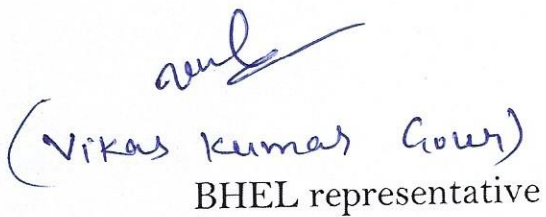 (Vikas Kumar Gour)
BHEL representative